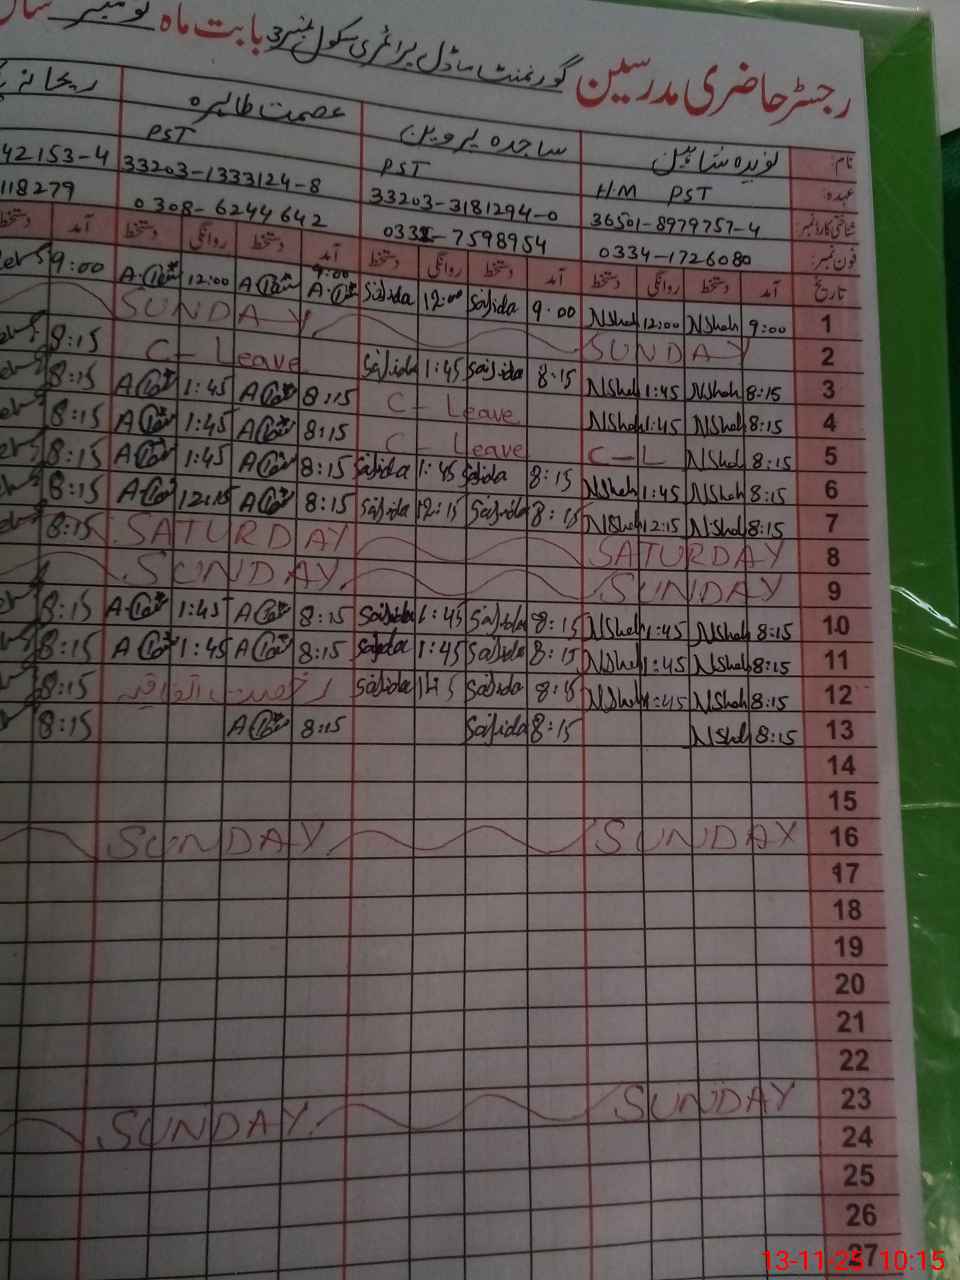 رجسٹر حاضری مدرسین گورنمنٹ ماڈل پرائمری سکول نمبر 3 بابت ماہ نومبر سال
نام: نویدہ شاہین ساجدہ پروین عصمت طاہرہ ریحانہ
عہدہ: H.M PST PST PST
شناختی کارڈ نمبر: 36501-8979757-4 33203-3181294-0 33203-1333124-8 42153-4
فون نمبر: 0334-1726080 7598954 0308-6244642 118279
تاریخ آمد دستخط روانگی دستخط آمد دستخط روانگی دستخط آمد دستخط روانگی دستخط آمد دستخط
1 9:00 NShah 12:00 NShah 9:00 Sajida 12:00 Sajida 9:00 12:00 9:00
2 SUNDAY SUNDAY
3 8:15 NShah 1:45 NShah 8:15 Sajida 1:45 Sajida C-Leave 8:15
4 8:15 NShah 1:45 NShah C-Leave 8:15 1:45 8:15
5 8:15 NShah C-L C-Leave 8:15 1:45 8:15
6 8:15 NShah 1:45 NShah 8:15 Sajida 1:45 Sajida 8:15 1:45 8:15
7 8:15 NShah 12:15 NShah 8:15 Sajida 12:15 Sajida 8:15 12:15 8:15
8 SATURDAY SATURDAY 8:15
9 SUNDAY SUNDAY
10 8:15 NShah 1:45 NShah 8:15 Sajida 1:45 Sajida 8:15 1:45 8:15
11 8:15 NShah 1:45 NShah 8:15 Sajida 1:45 Sajida 8:15 1:45 8:15
12 8:15 NShah 1:45 NShah 8:15 Sajida 1:45 Sajida رخصت اتفاقیہ 8:15
13 8:15 NShah 8:15 Sajida 8:15 8:15
14
15
16 SUNDAY SUNDAY
17
18
19
20
21
22
23 SUNDAY SUNDAY
24
25
26
27
13-11-25 10:15